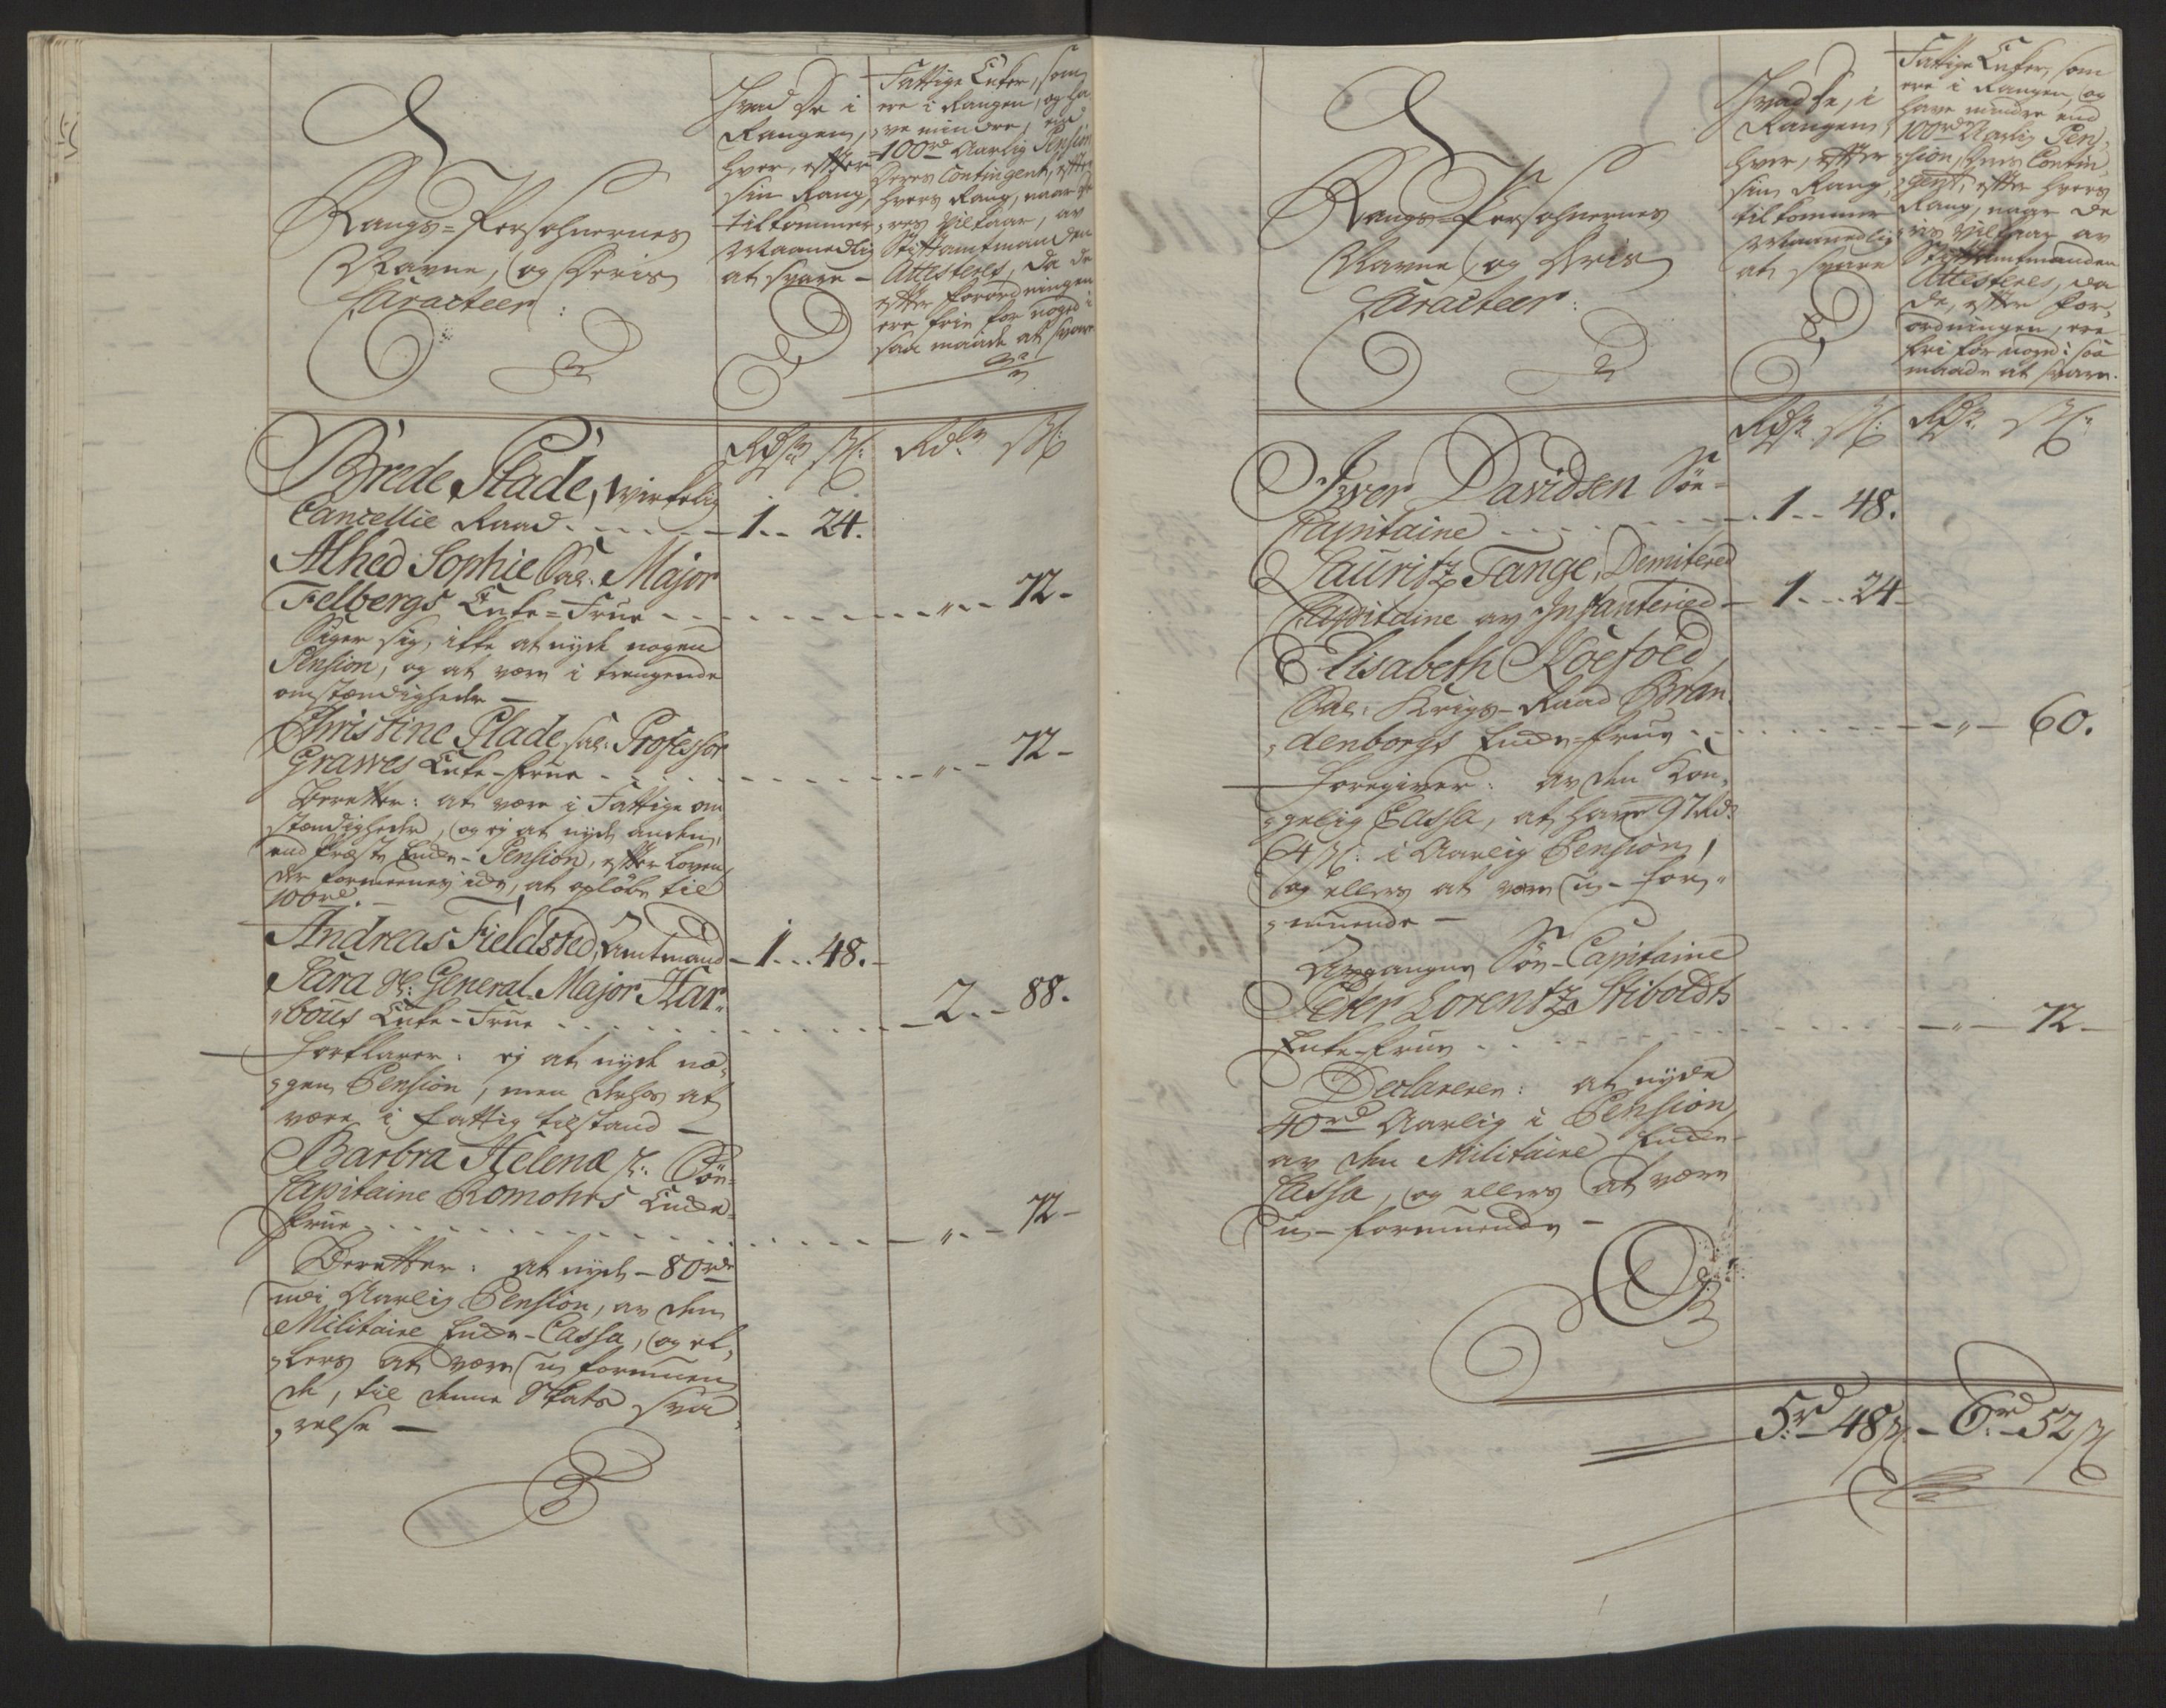 Rangs-Persohnernes
Navne, og Deris
Caracteer:
Hvad De i
Rangen,
hver, efter
sin Rang,
tilkommer
Maanedlig
at svare -
Fattige Enker, som
ere i Rangen, og ha
ve mindre, end
100rd Aarlig Pension
Deres Contingent, efter
hvers Rang, naar de
res Vilkaar, av
Stiftamtmanden
Attesteres, da de
efter Forordningen
ere frie for noged i
saa maade at svare
Rdlr ß: Rdlr ß
Brede Plade, Wirkelig
Cancellie Raad - 1 - 24.
Alhed Sophie Sal: Major
Felbergs Enke-Frue - " - 72 -
Siger sig, ikke at nyde nogen
Pension, og at være i trengende
omstændigheder -
Christine Plade sal: Professor
Grawes Enke-Frue - " - 72 -
Beretter: at være i Fattige om
stændigheder, og ej at nyde anden,
end Præste Enke-Pension, efter Loven,
der formeenes icke, at opløbe til
100rd. -
Andreas Fieldsted, Amtmand - 1 - 48. -
Sara Sl: General-Major Har-
"bous Enke-Frue - 2 - 88.
Forklarer: ej at nyde no-
gen Pension, men deres at
være i fattig tilstand -
Barbra Helene Sl: Søe-
Capitaine Romohrs Enke-
Frue - " - 72 -
Beretter: at nyde - 80rd
udi Aarlig Pension, av den
Militaire Enke-Cassa, og el-
lers at være u formuen
de, til denne Skats sva-
relse -
Rangs-Persohnernes
Navne og Deris
Caracteer:
Hvad De, i
Rangen,
hver, efter
sin Rang,
tilkommer
Maanedlig
at svare
Fattige Enker, som
ere i Rangen, og
have mindre end
100rd Aarlig Pen-
sion, Deres Contin-
gent, efter hvers
Rang, naar de
res Vilkaar av
Stiftamtmanden
Attesteres, da
de, efter For-
ordningen, ere
fri for noged i saa
maade at svare.
Rdlr ß: Rdlr ß:
Iver Davidsen Søe-
Capitaine - 1 - 48.
Lauritz Tange, Demitered
Capitaine av Infanteriet - 1 - 24 -
Elisabeth Koefoed,
Sal: Krigs-Raad Bran
denborgs Enke-Frue - " - 60.
Foregiver: av den Kon-
gelig Cassa, at have 97 Rd:
64 ß: i Aarlig Pension,
og ellers at være u-for-
muende -
Afgangne Søe-Capitaine
Peter Lorentz Stiboldts
Enke-Frue - " - 72 -
Declarerer: at nyde
40rd Aarlig i Pension,
av den Militaire Enke-
Cassa, og ellers at være
u-formuende -
5rd - 48ß - 6rd - 52ß